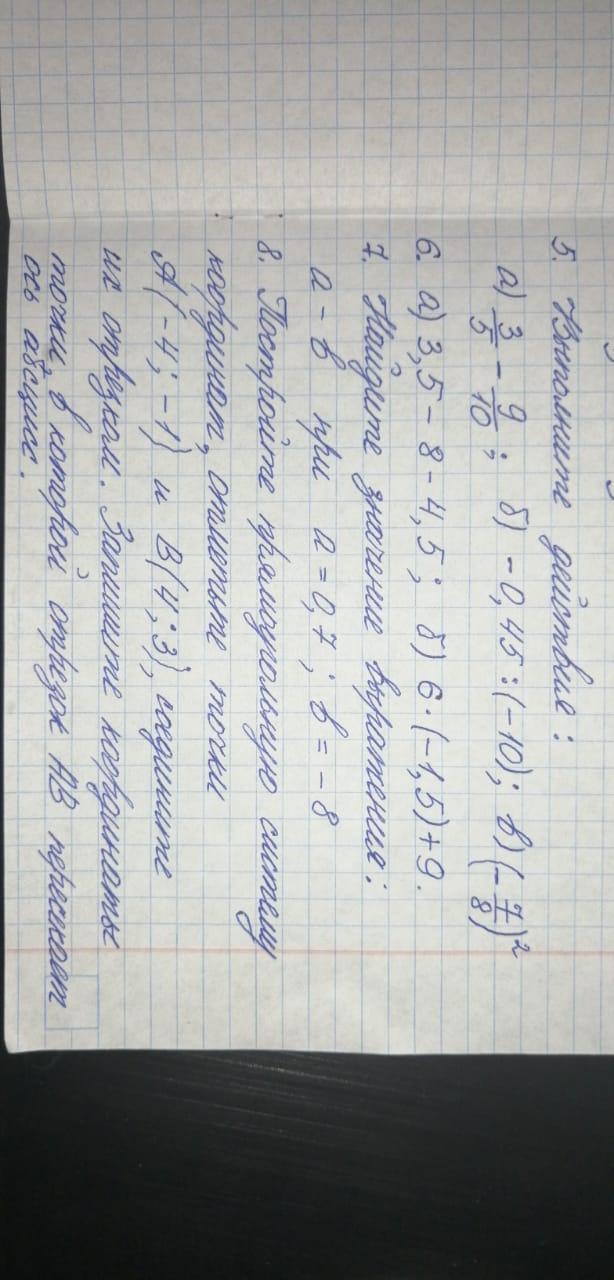 5. Выполните действие:
а) 3/5 - 9/10; б) -0,45:(-10); в) (-7/8)²
6. а) 3,5 - 8 - 4,5; б) 6·(-1,5)+9.
7. Найдите значение выражения:
а - в при а = 0,7; в = -8
8. Постройте прямоугольную систему
координат, отметьте точки
А(-4; -1) и В(4; 3), соедините
их отрезком. Запишите координаты
точки, в которой отрезок АВ пересекает
ось абсцисс.